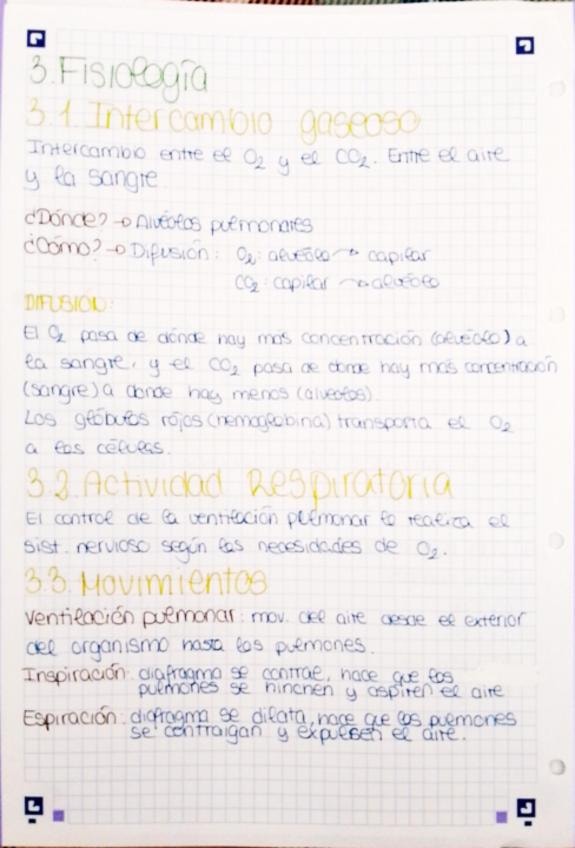 3. Fisiología
3.1. Intercambio gaseoso
Intercambio entre el O2 y el CO2. Entre el aire
y la sangre
¿Dónde? → Alvéolos pulmonares
¿Cómo? → Difusión: O2: alvéolo → capilar
CO2: capilar → alvéolo
DIFUSION:
El O2 pasa de dónde hay más concentración (alvéolo) a
la sangre, y el CO2 pasa de donde hay más concentración
(sangre) a donde hay menos (alvéolos).
Los glóbulos rójos (hemoglobina) transporta el O2
a las células.
3.2. Actividad Respiratoria
El control de la ventilación pulmonar lo realiza el
sist. nervioso según las necesidades de O2.
3.3. Movimientos
Ventilación pulmonar: mov. del aire desde el exterior
del organismo hasta los pulmones.
Inspiración: diafragma se contrae, hace que los
pulmones se hinchen y aspiren el aire
Espiración: diafragma se dilata, hace que los pulmones
se contraigan y expulsen el aire.